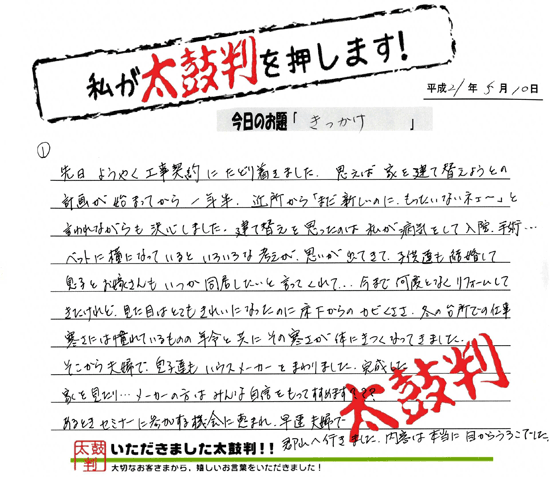 私が太鼓判を押します!
平成21年5月10日
今日のお題「きっかけ」
①
先日ようやく工事契約にたどり着きました。思えば家を建て替えようとの
計画が始まってから一年半、近所から「まだ新しいのに、もったいないネェ〜」と
言われながらも決心しました。建て替えを思ったのは私が病気をして入院、手術…
ベットに横になっているといろいろな考えが、思いが出てきて、子供達も結婚して
息子とお嫁さんもいつか同居したいと言ってくれて… 今まで何度となくリフォームして
きたけれど、見た目はとてもきれいになったのに床下からのカビくささ、冬の台所での仕事
寒さには慣れているものの年令と共にその寒さが体にきつくなってきました。
そこから夫婦で、息子達もハウスメーカーをまわりました。完成した
家を見たり…メーカーの方はみんな自信をもって勧めます??
あるときセミナーに参加する機会に恵まれ、早速夫婦で
郡山へ行きました。内容は本当に目からうろこでした。
太鼓判
太鼓判
いただきました太鼓判!!
大切なお客さまから、嬉しいお言葉をいただきました!